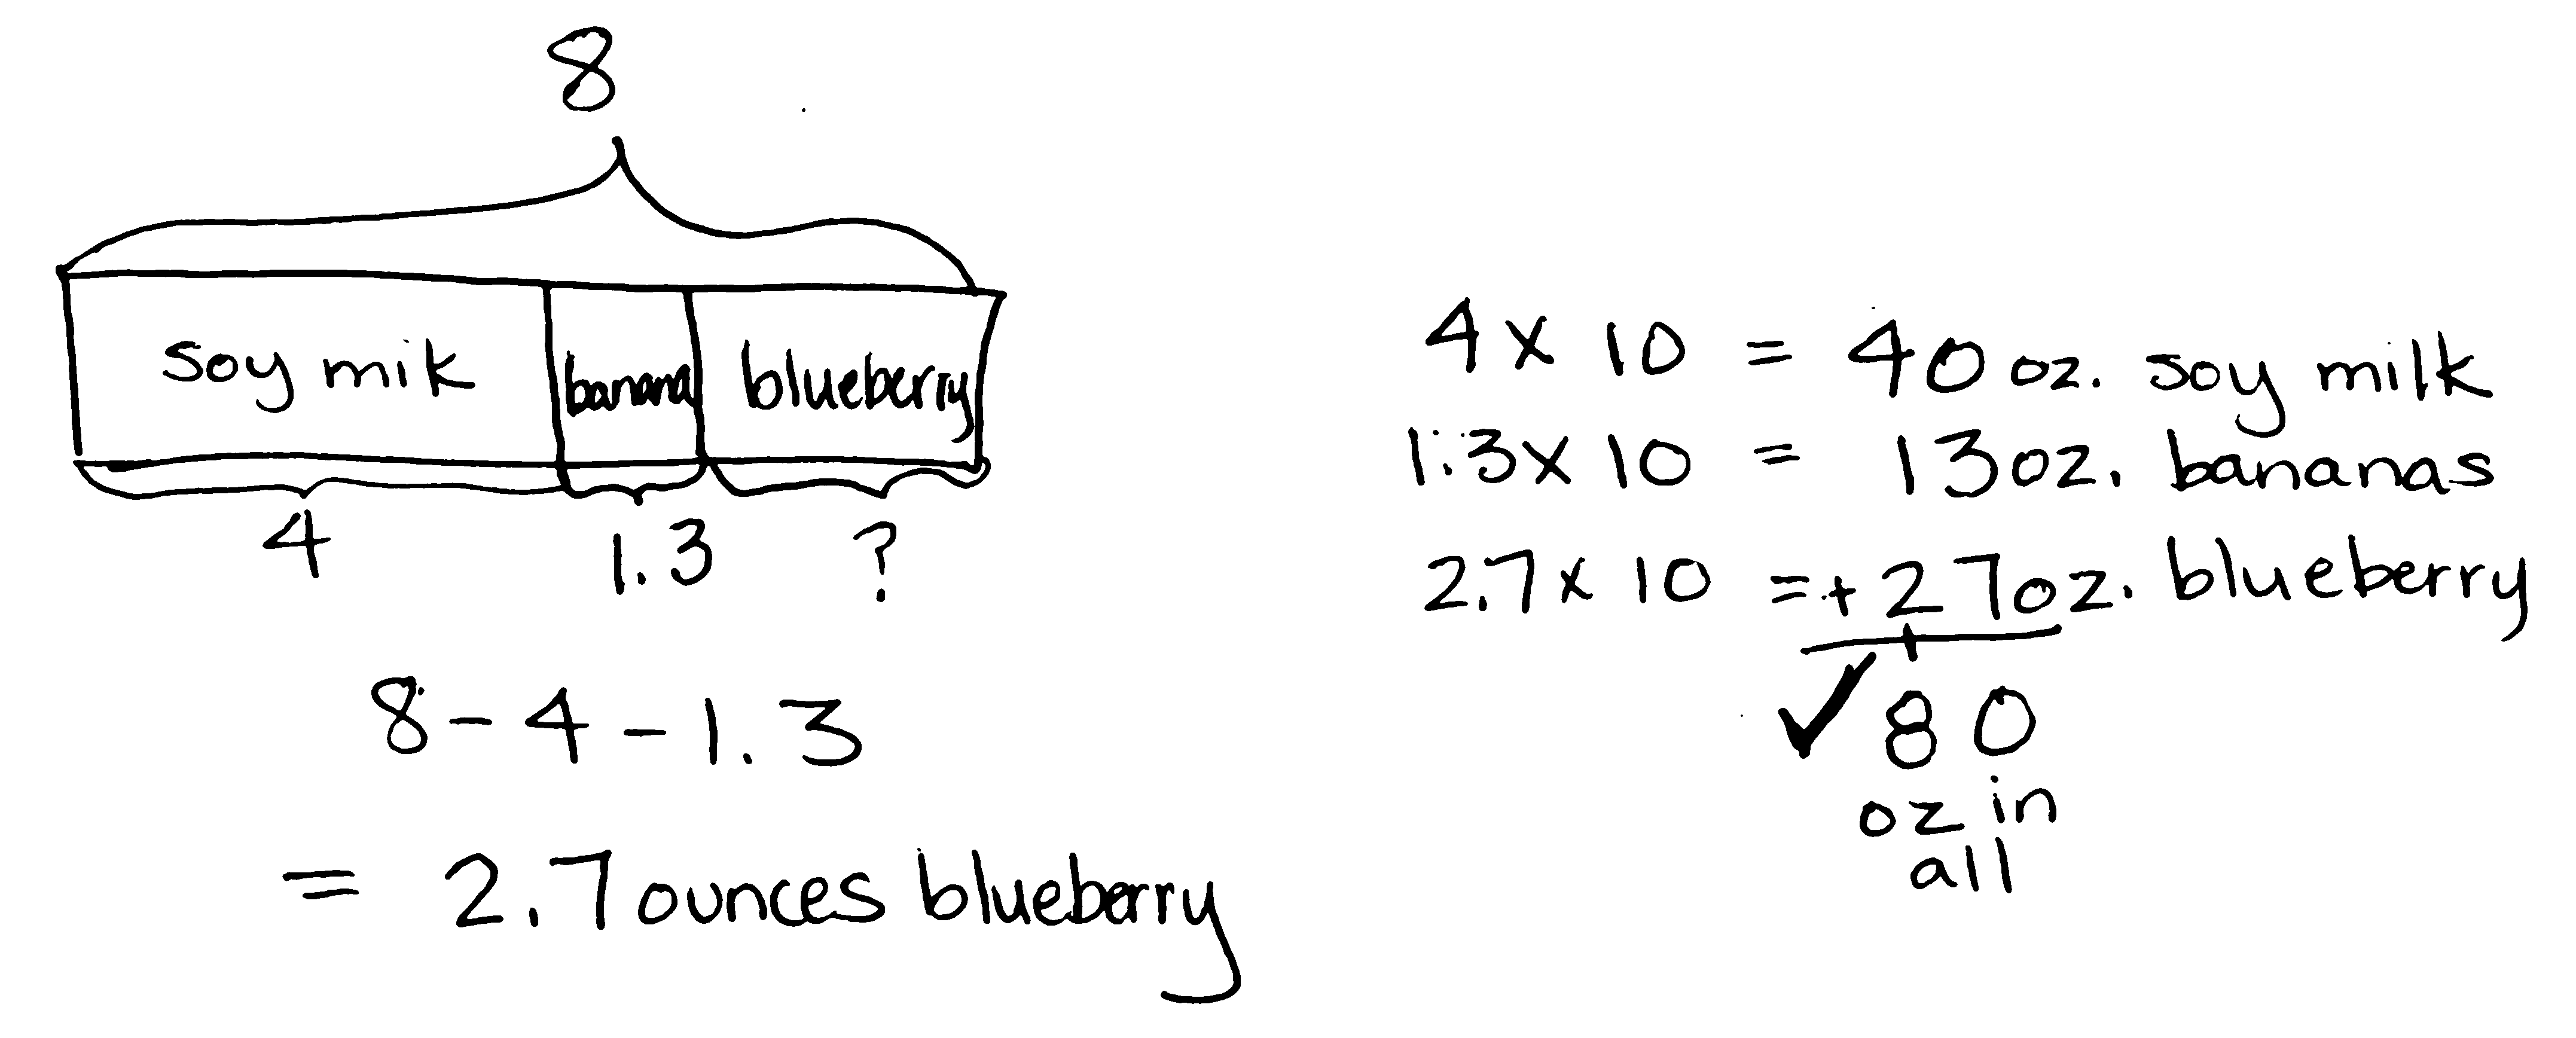 8
soy mik banana blueberry
4 1.3 ?
8 - 4 - 1.3
= 2.7 ounces blueberry
4 x 10 = 40 oz. soy milk
1.3 x 10 = 13 oz. bananas
2.7 x 10 = + 27 oz. blueberry
✓ 80
oz in
all